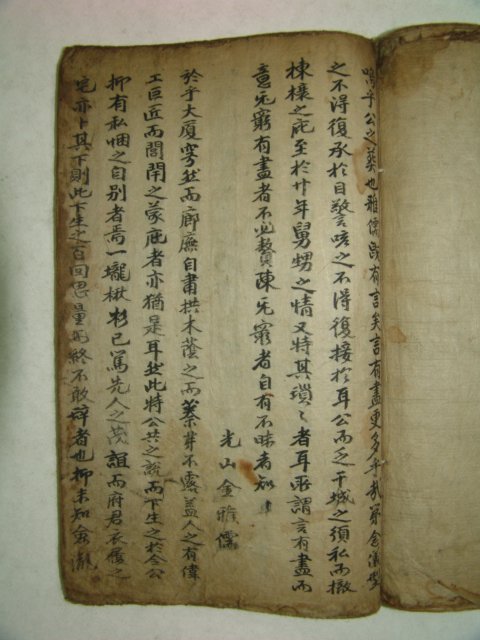 嗚乎公之葬也雅儒旣有言矣言有盡更多乎哉第念儀型
之不得復承於目警咳之不得復接於耳公而乏干城之須私而撤
棟樑之庇至於廿年舅甥之情又特其瑣〻者耳所謂言有盡而
意无窮有盡者不必贅陳无窮者自有不昧者知
光山金雅儒
於乎大廈穹然而廊廡自肅拱木蔭之而蓁芽不露盖人之有偉
工巨匠而閭閈之蒙庇者亦猶是耳然此特公共之說而下生之於令公
抑有私悃之自別者焉一壠楸杉已寓先人之茂誼而府君衣履之
宅亦卜其下則此下生之百回思量而終不敢辞者也抑未知